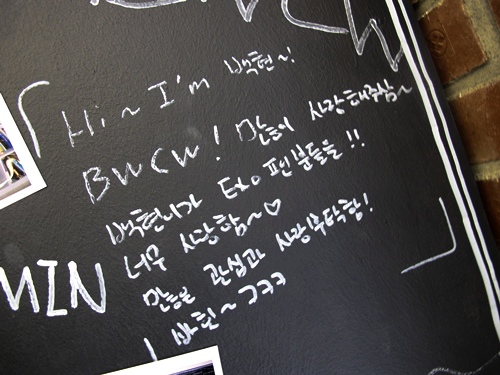 Hi~ I'm 백현~!
BWCW! 많이 사랑해주삼~
백현니가 EXO 팬분들을!!
너무 사랑함~♡
많은 관심과 사랑부탁함!
바힛~ㄱㅋㅋ
MIN